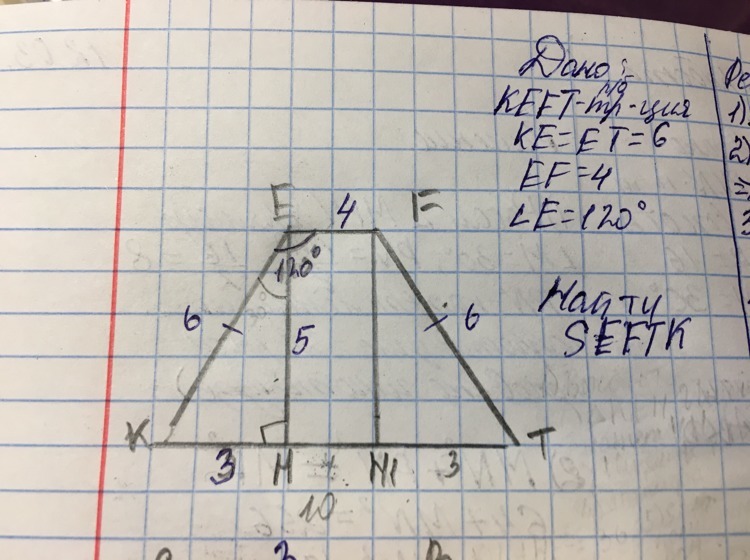 Дано:
р/б
KEFT-тр-ция
KE=ET=6
EF=4
∠E=120°
Найти
SEFTK
Ре
1)
2)
⇒
3
E 4 F
120°
6 5 6
K 3 H 4 H1 3 T
10